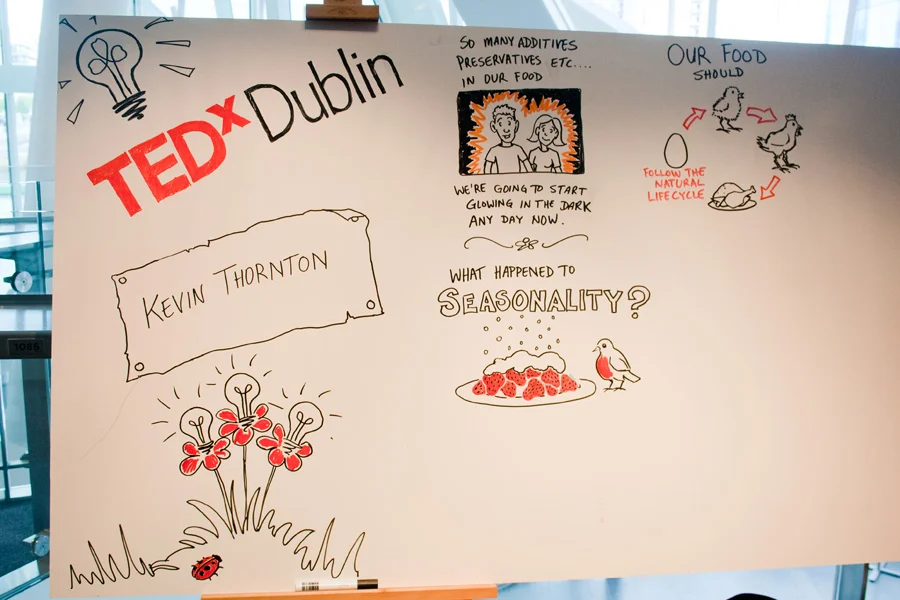 TEDxDublin
KEVIN THORNTON
SO MANY ADDITIVES
PRESERVATIVES ETC....
IN OUR FOOD
WE'RE GOING TO START
GLOWING IN THE DARK
ANY DAY NOW.
WHAT HAPPENED TO
SEASONALITY?
OUR FOOD
SHOULD
FOLLOW THE
NATURAL
LIFECYCLE